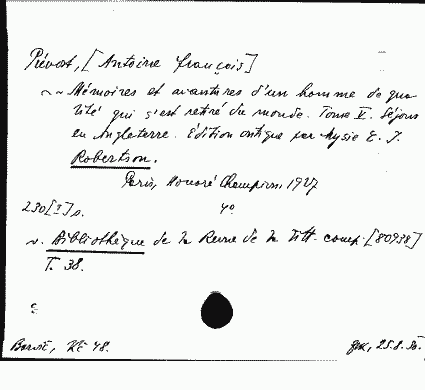 Prévost, [Antoine François]
~ ~ Mémoires et avantures d'un homme de qua-
lité qui s'est retiré du monde. Tome V. Séjour
en Angleterre. Edition critique par Mysie E. I.
Robertson.
Paris, Honoré Champion, 1927
230 [1] p. 4º
v. Bibliothèque de la Revue de la litt. comp. [80938]
T. 38.
Barrit, Kč 48.
25.8.